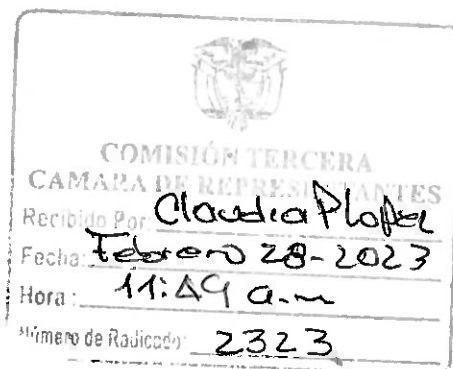 COMISIÓN TERCERA
CAMARA DE REPRESENTANTES
Recibido Por: Claudia P Lopez
Fecha: Febrero 28-2023
Hora: 11:49 a.m
Número de Radicado: 2323